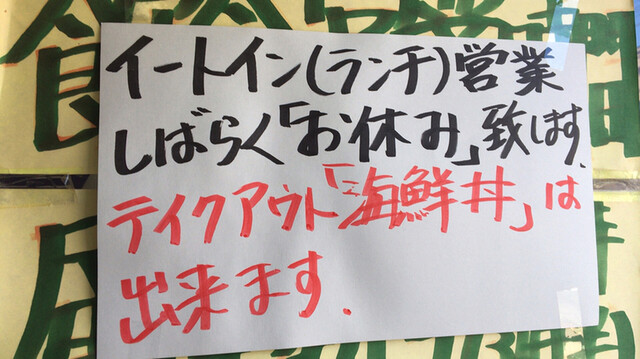 イートイン(ランチ)営業
しばらく「お休み」致します.
テイクアウト「海鮮丼」は
出来ます.